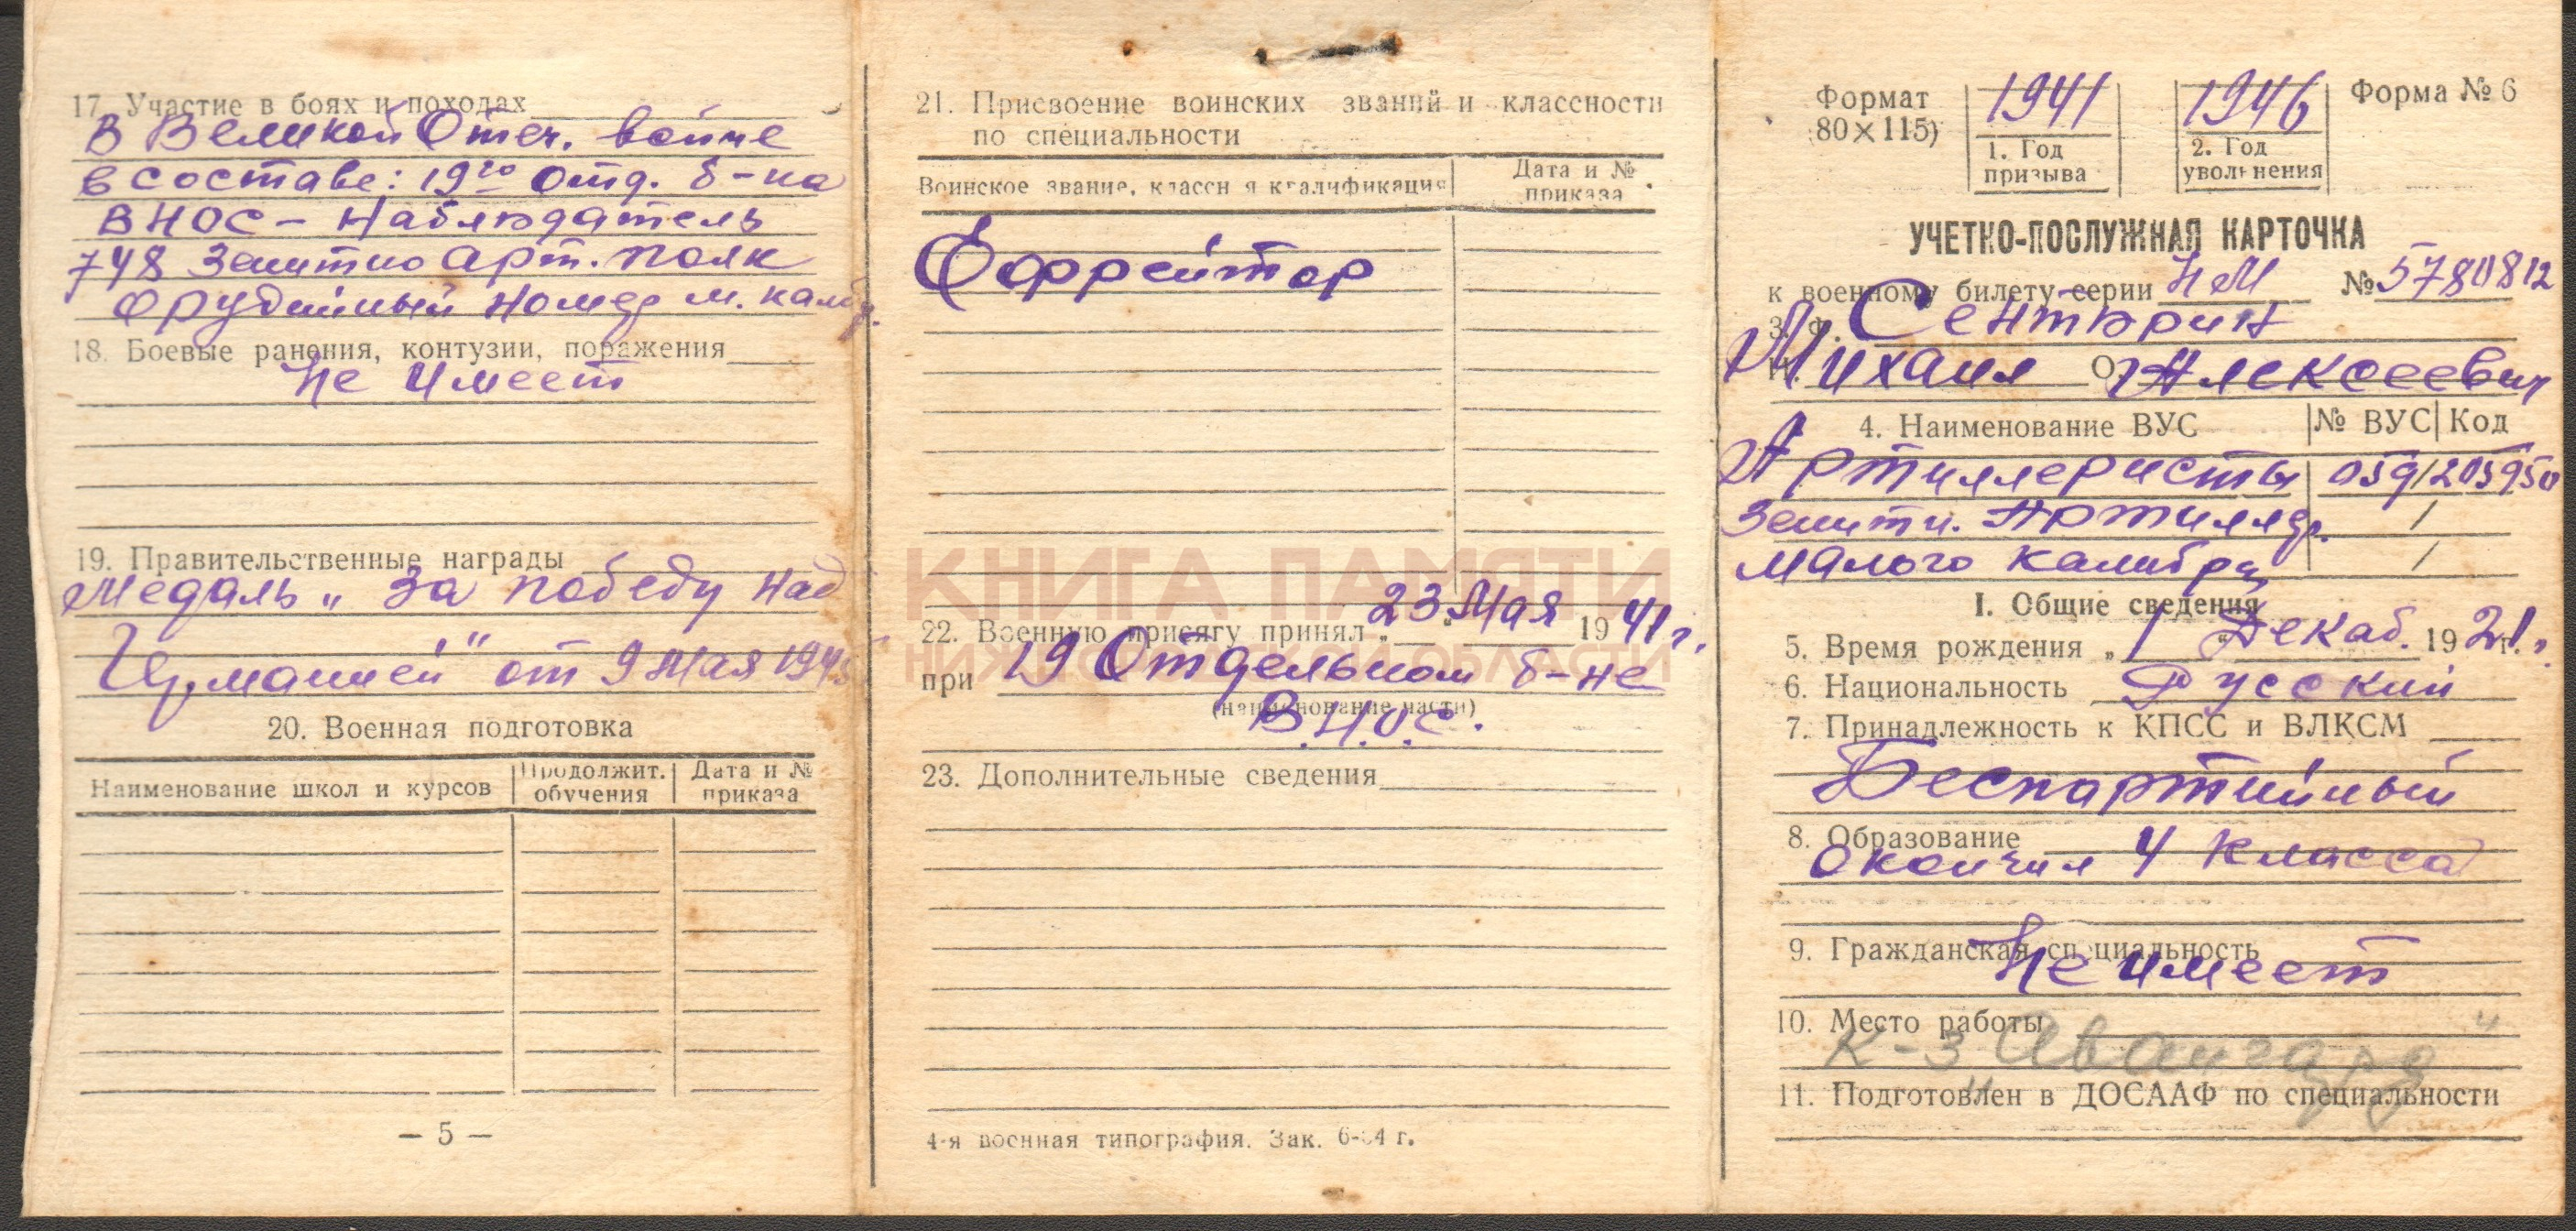 17. Участие в боях и походах
В Великой Отеч. войне
в составе: 19го отд. б-на
ВНОС – Наблюдатель
748 Зенитно арт. полк
орудийный номер м. калбр.
18. Боевые ранения, контузии, поражения
Не имеет
19. Правительственные награды
Медаль „За победу над
Германией" от 9 мая 1945
20. Военная подготовка
Наименование школ и курсов | Продолжит. обучения | Дата и № приказа
— 5 —
21. Присвоение воинских званий и классности
по специальности
Воинское звание, классн я квалификация | Дата и № приказа
Ефрейтор
КНИГА ПАМЯТИ
НИЖЕГОРОДСКОЙ ОБЛАСТИ
22. Военную присягу принял „23" Мая 1941 г.
при 19 Отдельном б-не
(наименование части)
В.Н.О.С.
23. Дополнительные сведения
4-я военная типография. Зак. 6-64 г.
Формат
80×115)
1941
1. Год
призыва
1946
2. Год
увольнения
Форма № 6
УЧЕТНО-ПОСЛУЖНАЯ КАРТОЧКА
к военному билету серии НМ № 5780812
3. Ф. Сентюрин
И. Михаил О. Алексеевич
4. Наименование ВУС | № ВУС | Код
Артиллеристы 059/205950
Зенитн. Артилляр.
малого калибра
I. Общие сведения
5. Время рождения „1" Декаб. 1921 г.
6. Национальность Русский
7. Принадлежность к КПСС и ВЛКСМ
Беспартийный
8. Образование
окончил 4 класса
9. Гражданская специальность
Не имеет
10. Место работы
К-з „Авангард"
11. Подготовлен в ДОСААФ по специальности